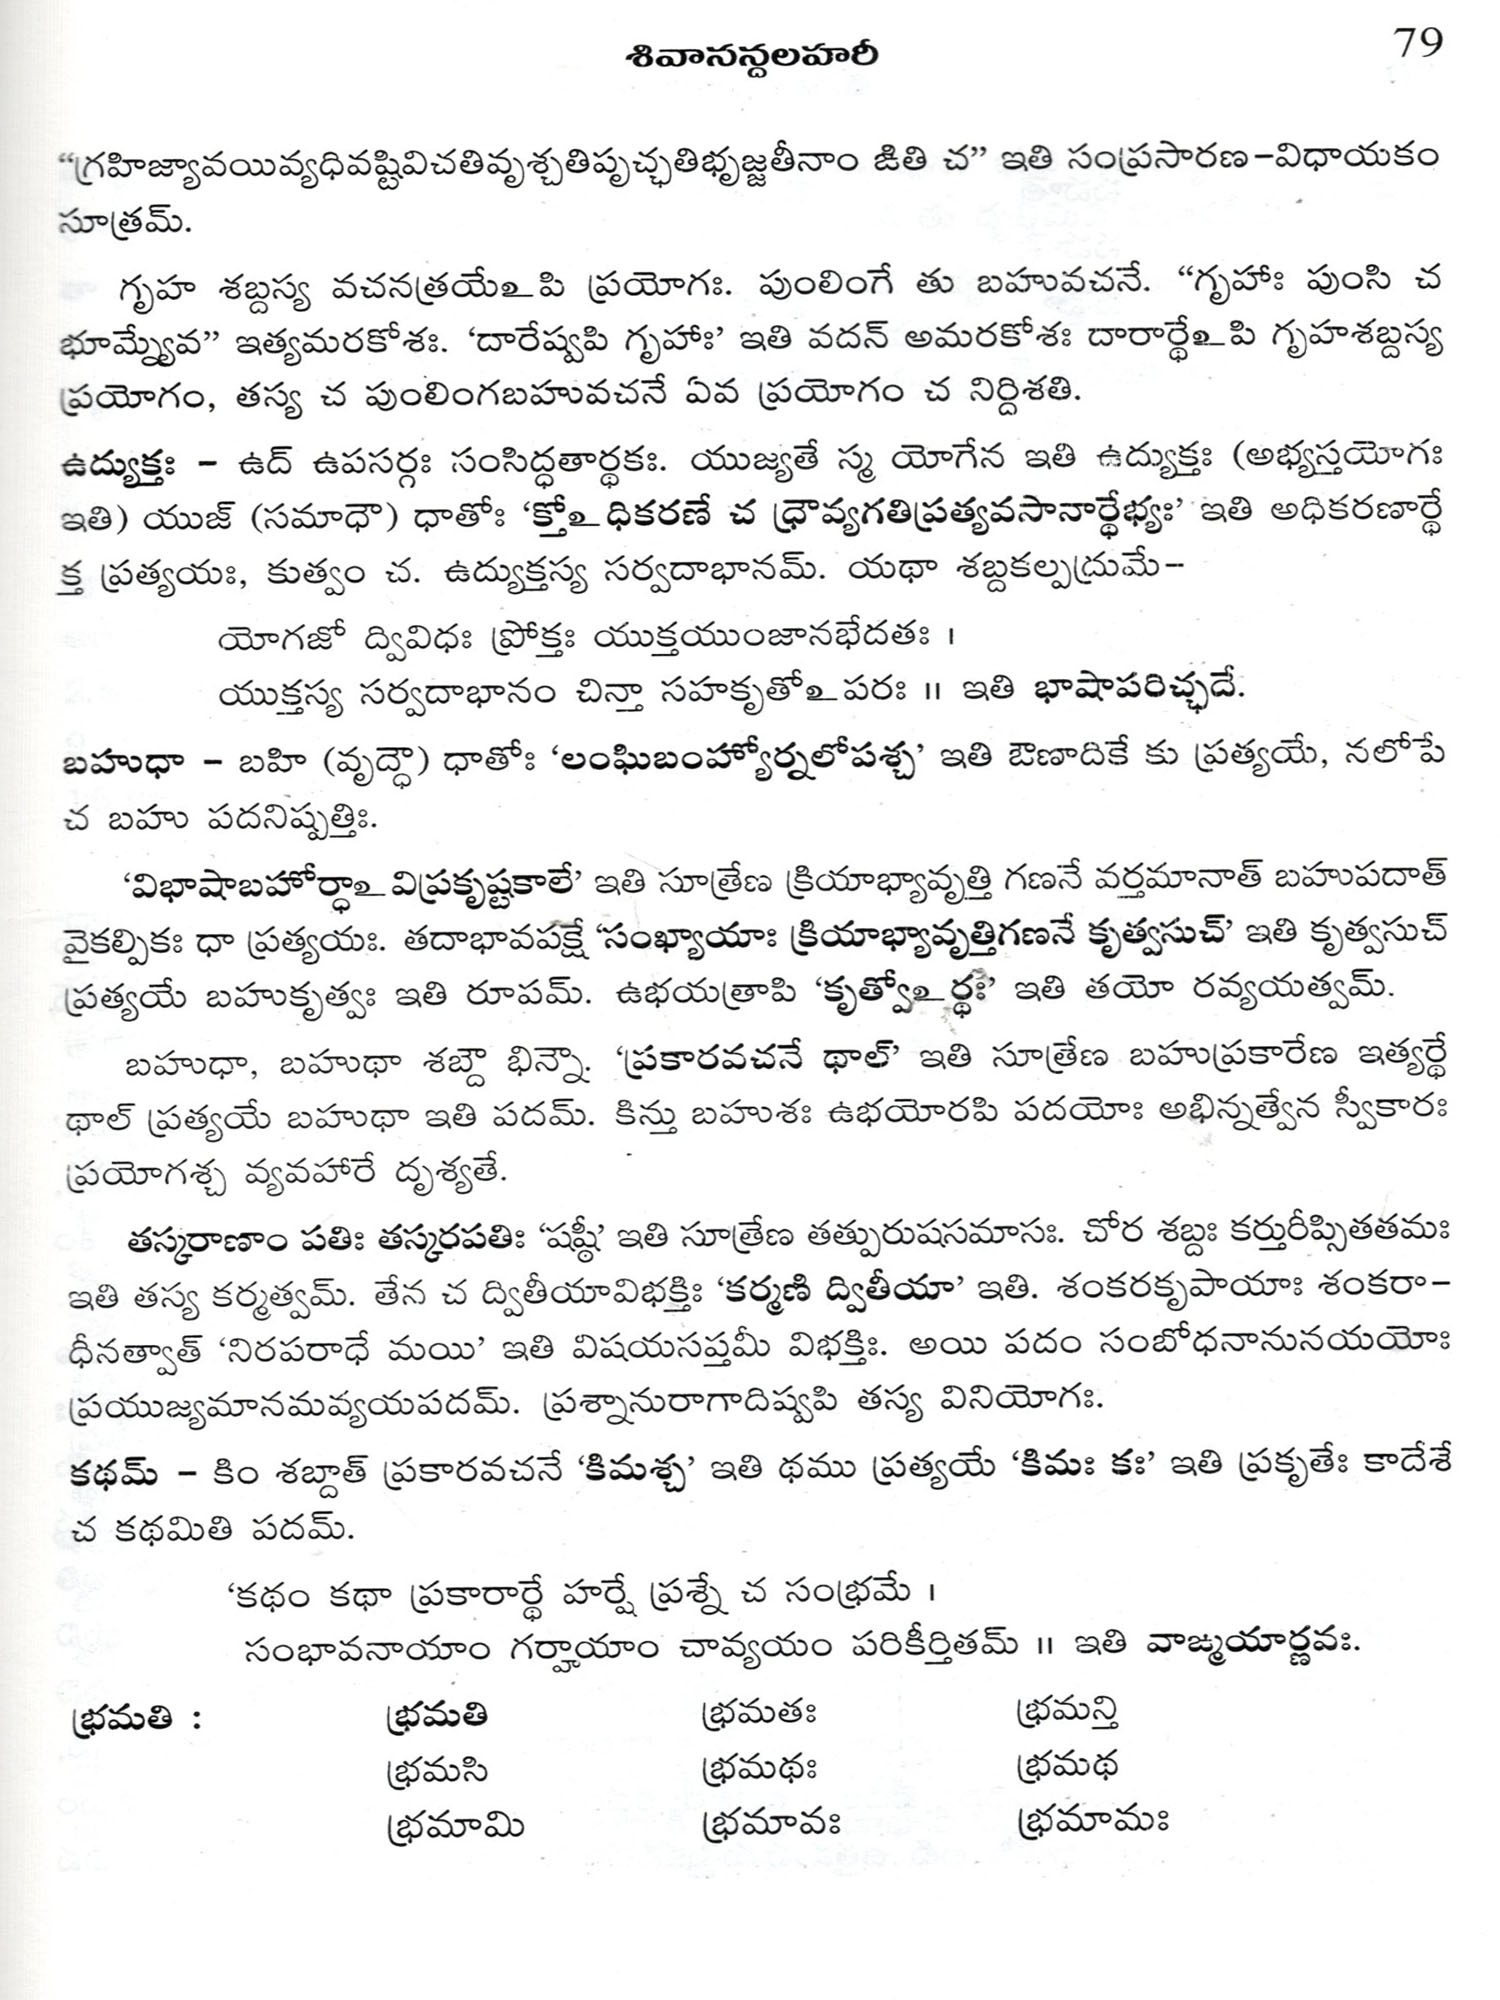 శివానన్దలహరీ
79
“గ్రహిజ్యావయివ్యధివష్టివిచతివృశ్చతిపృచ్ఛతిభృజ్జతీనాం ఙితి చ” ఇతి సంప్రసారణ-విధాయకం
సూత్రమ్.
గృహ శబ్దస్య వచనత్రయేఽపి ప్రయోగః. పుంలింగే తు బహువచనే. “గృహాః పుంసి చ
భూమ్న్యేవ” ఇత్యమరకోశః. ‘దారేష్వపి గృహాః’ ఇతి వదన్ అమరకోశః దారార్థేఽపి గృహశబ్దస్య
ప్రయోగం, తస్య చ పుంలింగబహువచనే ఏవ ప్రయోగం చ నిర్దిశతి.
ఉద్యుక్తః – ఉద్ ఉపసర్గః సంసిద్ధతార్థకః. యుజ్యతే స్మ యోగేన ఇతి ఉద్యుక్తః (అభ్యస్తయోగః
ఇతి) యుజ్ (సమాధౌ) ధాతోః ‘క్తోఽధికరణే చ ధ్రౌవ్యగతిప్రత్యవసానార్థేభ్యః’ ఇతి అధికరణార్థే
క్త ప్రత్యయః, కుత్వం చ. ఉద్యుక్తస్య సర్వదాభానమ్. యథా శబ్దకల్పద్రుమే–
యోగజో ద్వివిధః ప్రోక్తః యుక్తయుంజానభేదతః ।
యుక్తస్య సర్వదాభానం చిన్తా సహకృతోఽపరః ॥ ఇతి భాషాపరిచ్ఛదే.
బహుధా – బహి (వృద్ధౌ) ధాతోః ‘లంఘిబంహ్యోర్నలోపశ్చ’ ఇతి ఔణాదికే కు ప్రత్యయే, నలోపే
చ బహు పదనిష్పత్తిః.
‘విభాషాబహోర్ధాఽవిప్రకృష్టకాలే’ ఇతి సూత్రేణ క్రియాభ్యావృత్తి గణనే వర్తమానాత్ బహుపదాత్
వైకల్పికః ధా ప్రత్యయః. తదాభావపక్షే ‘సంఖ్యాయాః క్రియాభ్యావృత్తిగణనే కృత్వసుచ్’ ఇతి కృత్వసుచ్
ప్రత్యయే బహుకృత్వః ఇతి రూపమ్. ఉభయత్రాపి ‘కృత్వోఽర్థః’ ఇతి తయో రవ్యయత్వమ్.
బహుధా, బహుథా శబ్దౌ భిన్నౌ. ‘ప్రకారవచనే థాల్’ ఇతి సూత్రేణ బహుప్రకారేణ ఇత్యర్థే
థాల్ ప్రత్యయే బహుథా ఇతి పదమ్. కిన్తు బహుశః ఉభయోరపి పదయోః అభిన్నత్వేన స్వీకారః
ప్రయోగశ్చ వ్యవహారే దృశ్యతే.
తస్కరాణాం పతిః తస్కరపతిః ‘షష్ఠీ’ ఇతి సూత్రేణ తత్పురుషసమాసః. చోర శబ్దః కర్తురీప్సితతమః
ఇతి తస్య కర్మత్వమ్. తేన చ ద్వితీయావిభక్తిః ‘కర్మణి ద్వితీయా’ ఇతి. శంకరకృపాయాః శంకరా–
ధీనత్వాత్ ‘నిరపరాధే మయి’ ఇతి విషయసప్తమీ విభక్తిః. అయి పదం సంబోధనానునయయోః
ప్రయుజ్యమానమవ్యయపదమ్. ప్రశ్నానురాగాదిష్వపి తస్య వినియోగః.
కథమ్ – కిం శబ్దాత్ ప్రకారవచనే ‘కిమశ్చ’ ఇతి థము ప్రత్యయే ‘కిమః కః’ ఇతి ప్రకృతేః కాదేశే
చ కథమితి పదమ్.
‘కథం కథా ప్రకారార్థే హర్షే ప్రశ్నే చ సంభ్రమే ।
సంభావనాయాం గర్హాయాం చావ్యయం పరికీర్తితమ్ ॥ ఇతి వాఙ్మయార్ణవః.
భ్రమతి : భ్రమతి భ్రమతః భ్రమన్తి
భ్రమసి భ్రమథః భ్రమథ
భ్రమామి భ్రమావః భ్రమామః